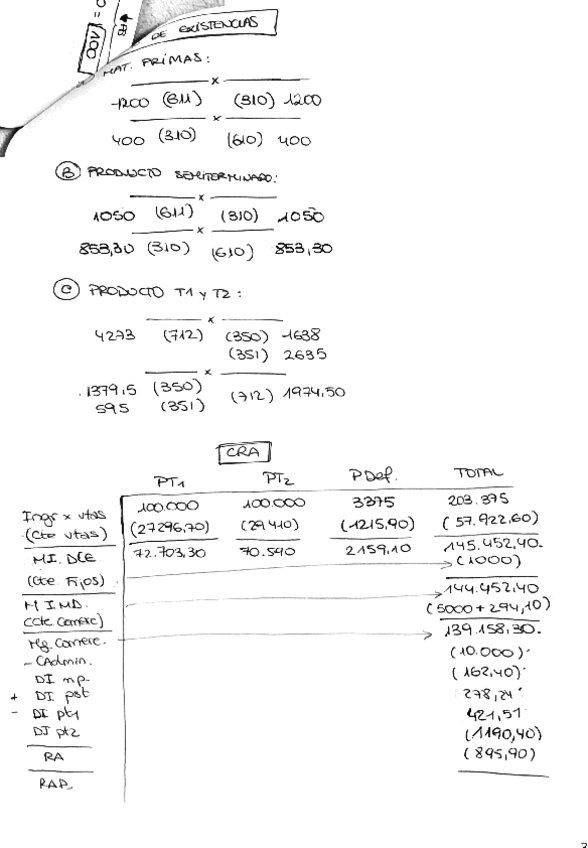 DE EXISTENCIAS
100
MAT. PRIMAS:
x
1200 (611) (310) 1200
x
400 (310) (610) 400
B PRODUCTO SEMITERMINADO:
x
1050 (611) (310) 1050
x
853,30 (310) (610) 853,30
C PRODUCTO T1 y T2:
x
4273 (712) (350) 1638
(351) 2635
x
1379,5 (350) (712) 1974,50
595 (351)
CRA
PT1 PT2 P Def. TOTAL
Ingr x vtas 100.000 100.000 3375 203.375
(Cto vtas) (27296,70) (29410) (1215,90) (57.922,60)
MI. DCE 72.703,30 70.590 2159,10 145.452,40.
(Cte Fijos) (1000)
M IMD. 144.452,40
(Cte Comerc) (5000 + 294,10)
Mg. Comerc. 139.158,30.
- CAdmin. (10.000)
DI mp. (162,40)
+ DI pst 278,24
- DI pt1 421,51
DI pt2 (1190,40)
RA (895,90)
RAP